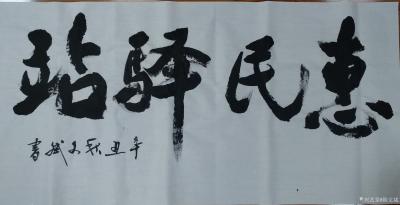 惠民驿站
辛丑秋文斌書